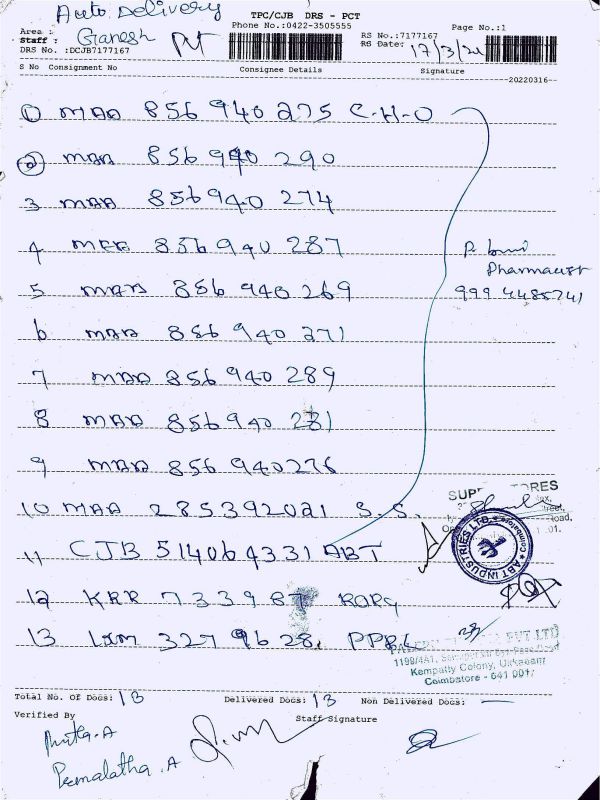 Auto Delivery
TPC/CJB DRS - PCT
Phone No.:0422-3505555
Page No.:1
Area :
Staff : Ganesh
RS No.:7177167
RS Date: 17/3/22
DRS No. :DCJB7177167
S No Consignment No Consignee Details Signature
20220316
1 MAA 856 940 275 C-H-O
2 MAA 856 940 290
3 MAA 856940 274
4 MAA 856 940 287
5 MAA 856 940 269
6 MAA 856 940 271
7 MAA 856 940 289
8 MAA 856 940 281
9 MAA 856 940276
Pharmacist
999 4485741
10 MAA 285392021 S.S.
11 CJB 514064331 ABT
12 KRR 733987
13 327 9628
ABT INDUSTRIES LTD. Coimbatore
PVT LTD
1199/4A1,
Kempatty Colony, Ukkadam
Coimbatore - 641 001
Total No. Of Docs: 13 Delivered Docs: 13 Non Delivered Docs: —
Verified By Staff Signature
Premalatha . A